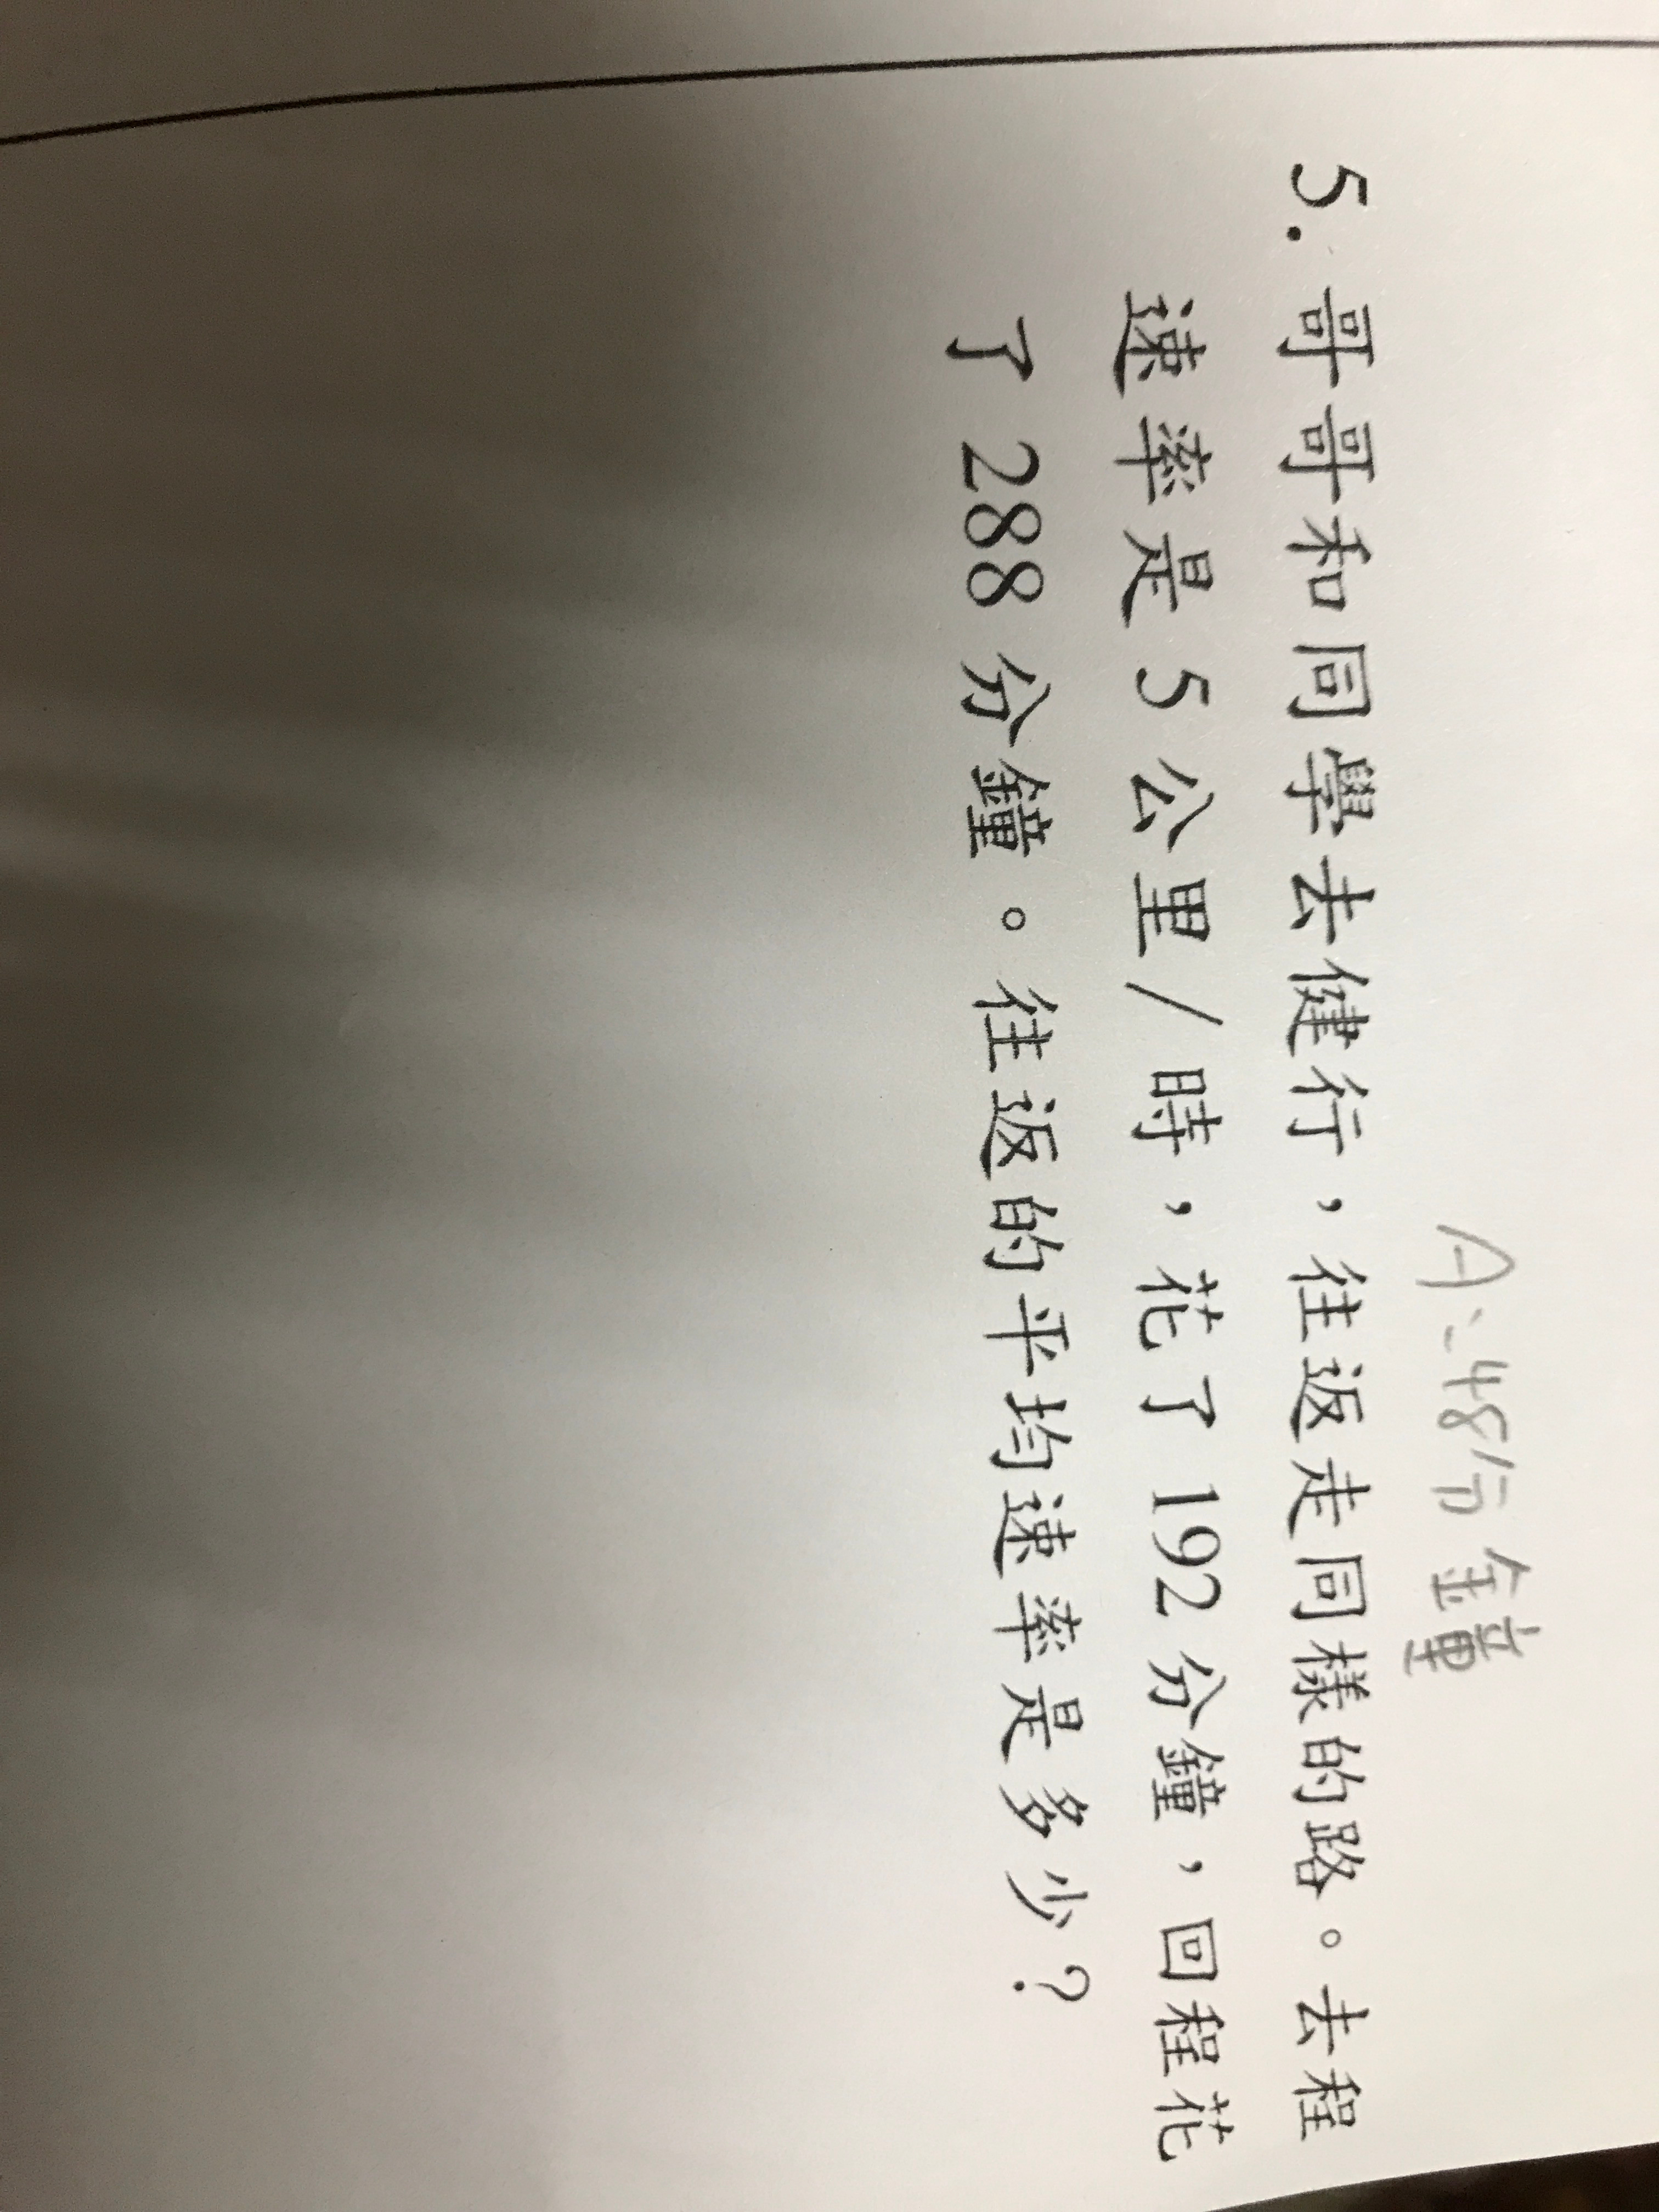 A：48分鐘
5. 哥哥和同學去健行，往返走同樣的路。去程
速率是5公里/時，花了192分鐘，回程花
了288分鐘。往返的平均速率是多少？